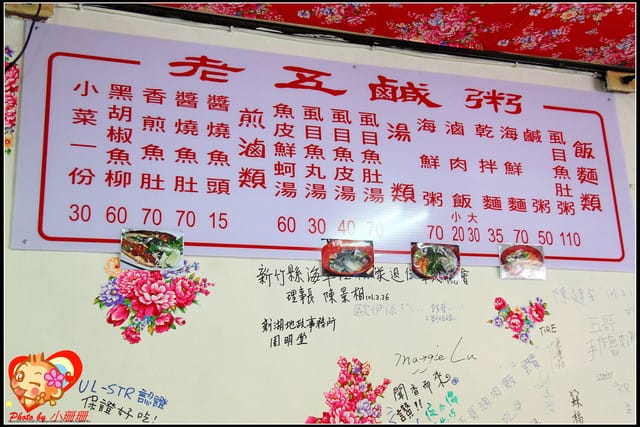 老五鹹粥
飯麵類
虱目魚肚粥 110
鹹粥 50
海鮮麵 70
乾拌麵 35
滷肉飯 小20 大30
海鮮粥 70
湯類
虱目魚肚湯 70
虱目魚皮湯 40
虱目魚丸湯 30
魚皮鮮蚵湯 60
煎滷類
醬燒魚頭 15
醬燒魚肚 70
香煎魚肚 70
黑胡椒魚柳 60
小菜一份 30
新竹縣海
理事長 陳景相 101.3.26
新湖地政事務所
周明堂
Maggie Lu
聞香而來
讚!!
TIRE
五哥
UL-STR 認證
保證好吃!
Photo by 小珊珊